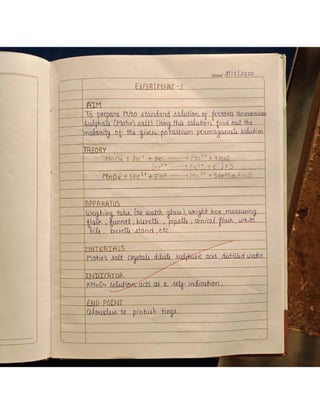 EXPERIMENT-1
AIM
To prepare M/20 standard solution of ferrous ammonium
sulphate (Mohr's salt). Using this solution find out the
molarity of the given potassium permanganate solution.
THEORY
MnO4 + 8H+ + 5e → Mn2+ + 4H2O
MnO4 + 5Fe2+ + 8H+ → Mn2+ + 5Fe3+ + 4H2O
APPARATUS
Weighing tube (or watch glass), weight box, measuring
flask, funnel, burette, pipette, conical flask, white
tile, burette stand, etc.
MATERIALS
Mohr's salt crystals, dilute sulphuric acid, distilled water.
INDICATOR
KMnO4 solution acts as a self indication.
END POINT
Colourless to pinkish tinge.